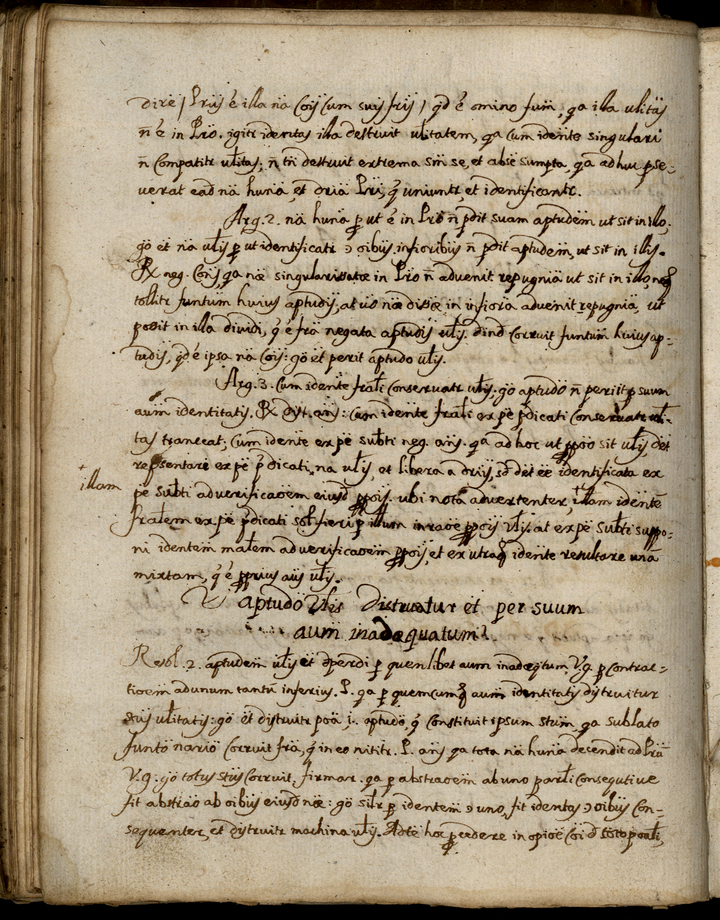 dire / Prius è illa na Coïs Cum suis frijs / qd ē omino fum, qa illa ulitas
n ē in Pro. igitr identitas illa destruit ulitatem, qa Cum idente singulari
n Compatitr ulitas; n tn destruit extrema sm se, et absē sumpta, qa adhuc pse-
verat ead na huna, et dria Pri, q uniuntr, et identificantr.
Arg. 2. na huna p ut ē in Pro n pdit suam aptudem ut sit in illo,
go et na ulis p ut identificatr ɔ oibus inferioribus n pdit aptudem, ut sit in illis.
R neg. Cons, qa nae singularizatae in Pro n advenit repugnia ut sit in illo neq
tollitr funtum huius aptudis, at vo nae divisae in infiora advenit repugnia, ut
possit in illa dividi, q ē fra negata aptudis ulis. dind Corruit funtum huius ap-
tudis, qd ē ipsa na Cois: go et perit aptudo ulis.
Arg. 3. Cum idente frali Conservatr ulis. go aptudo n periit p suum
aum identitatis. R dist. ans: Cum idente frali ex pe pdicati Conservatr uli-
tas transeat; Cum idente ex pe subti neg. ans. qa ad hoc ut ppo sit ulis, det
repsentare ex pe pdicati, na ulis, et libera a driis, sd det ee identificata ex
pe subti ad verificaoem eiusd ppois. ubi nota advertenter, illam idente
illam
fralem ex pe pdicati sol fieri p illum in raoe ppois ulis. at ex pe subti suppo-
ni identem malem ad verificaoem ppois, et ex utraq idente resultare una
mixtam, q ē pprius aus ulis.
aptudo Ulis Distruatur et per suum
aum inadaequatum?
Resol. 2. aptudem ulis et dperdi p quenlibet aum inadeqtum. V.g. p Contrac-
tioem ad unum tantu inferius. P. qa p quemcumq aum identitatis distruitur
status ulitatis: go et distruitr poa i. aptudo, q Constituit ipsum stum, qa sublato
funto nario Corruit fra, q in eo nititr. P. ans qa tota na huna decendit ad Pru
V.g. go totus stus Corruit. firmar. qa p abstraoem ab uno parli Consequtive
fit abstrao ab oibus eiusd nae: go silr p identem ɔ uno, fit identas ɔ oibus Con-
sequenter, et distruitr machina ulis. Adte hoc pcedere in opioe Coi d toto poali,